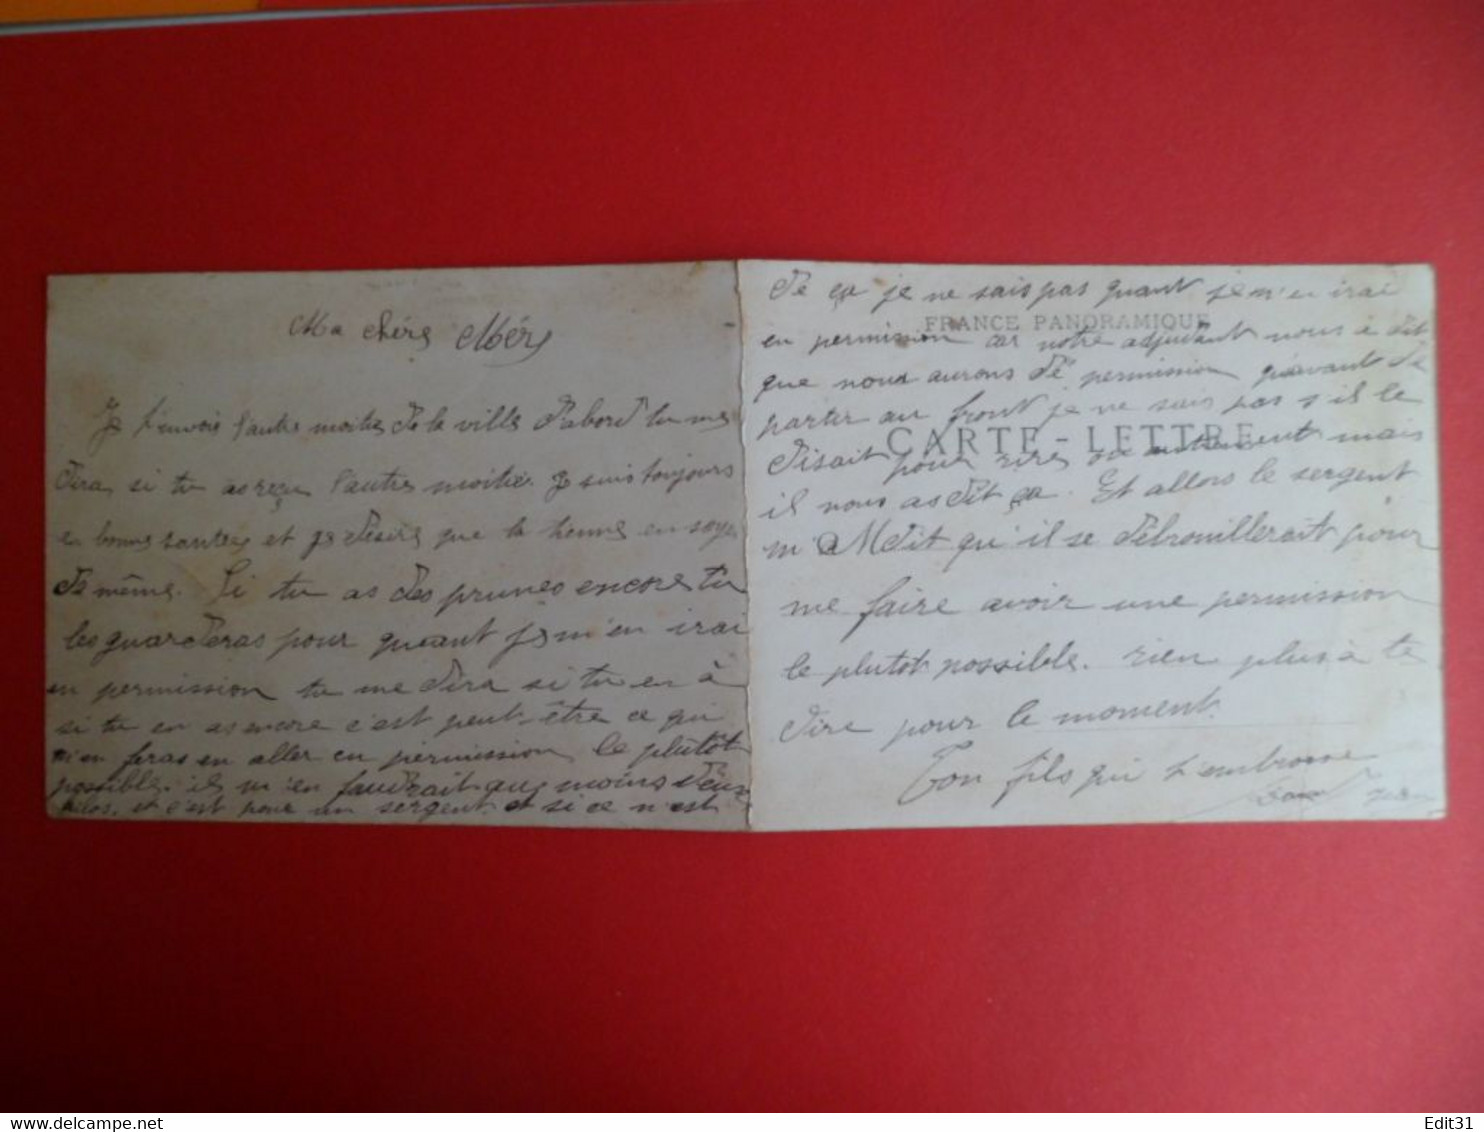 Ma chére Mére
Je t'envois l'autre moitie de la ville d'abord tu me
dira si tu as reçu l'autre moitie. Je suis toujours
en bonne santee et je desire que la tienne en soye
de même. Si tu as des prunes encore tu
les guarderas pour quant je m'en irai
en permission tu me dira si tu en à
si tu en as encore c'est peut-être ce qui
m'en feras en aller en permission le plutôt
possible. il m'en faudrait au moins deux
kilos, et c'est pour un sergent et si ce n'est
de ça je ne sais pas quant je m'en irai
FRANCE PANORAMIQUE
en permission car notre adjudant nous à dit
que nous aurons dé permission avant de
parter au front je ne sais pas s'il le
CARTE-LETTRE
disait pour rire ou autrement mais
il nous as dit ça. Et allors le sergent
m'a dit qu'il se débrouillerait pour
me faire avoir une permission
le plutot possible. rien plus à te
dire pour le moment.
Ton fils qui t'embrasse
Jean
Edit31